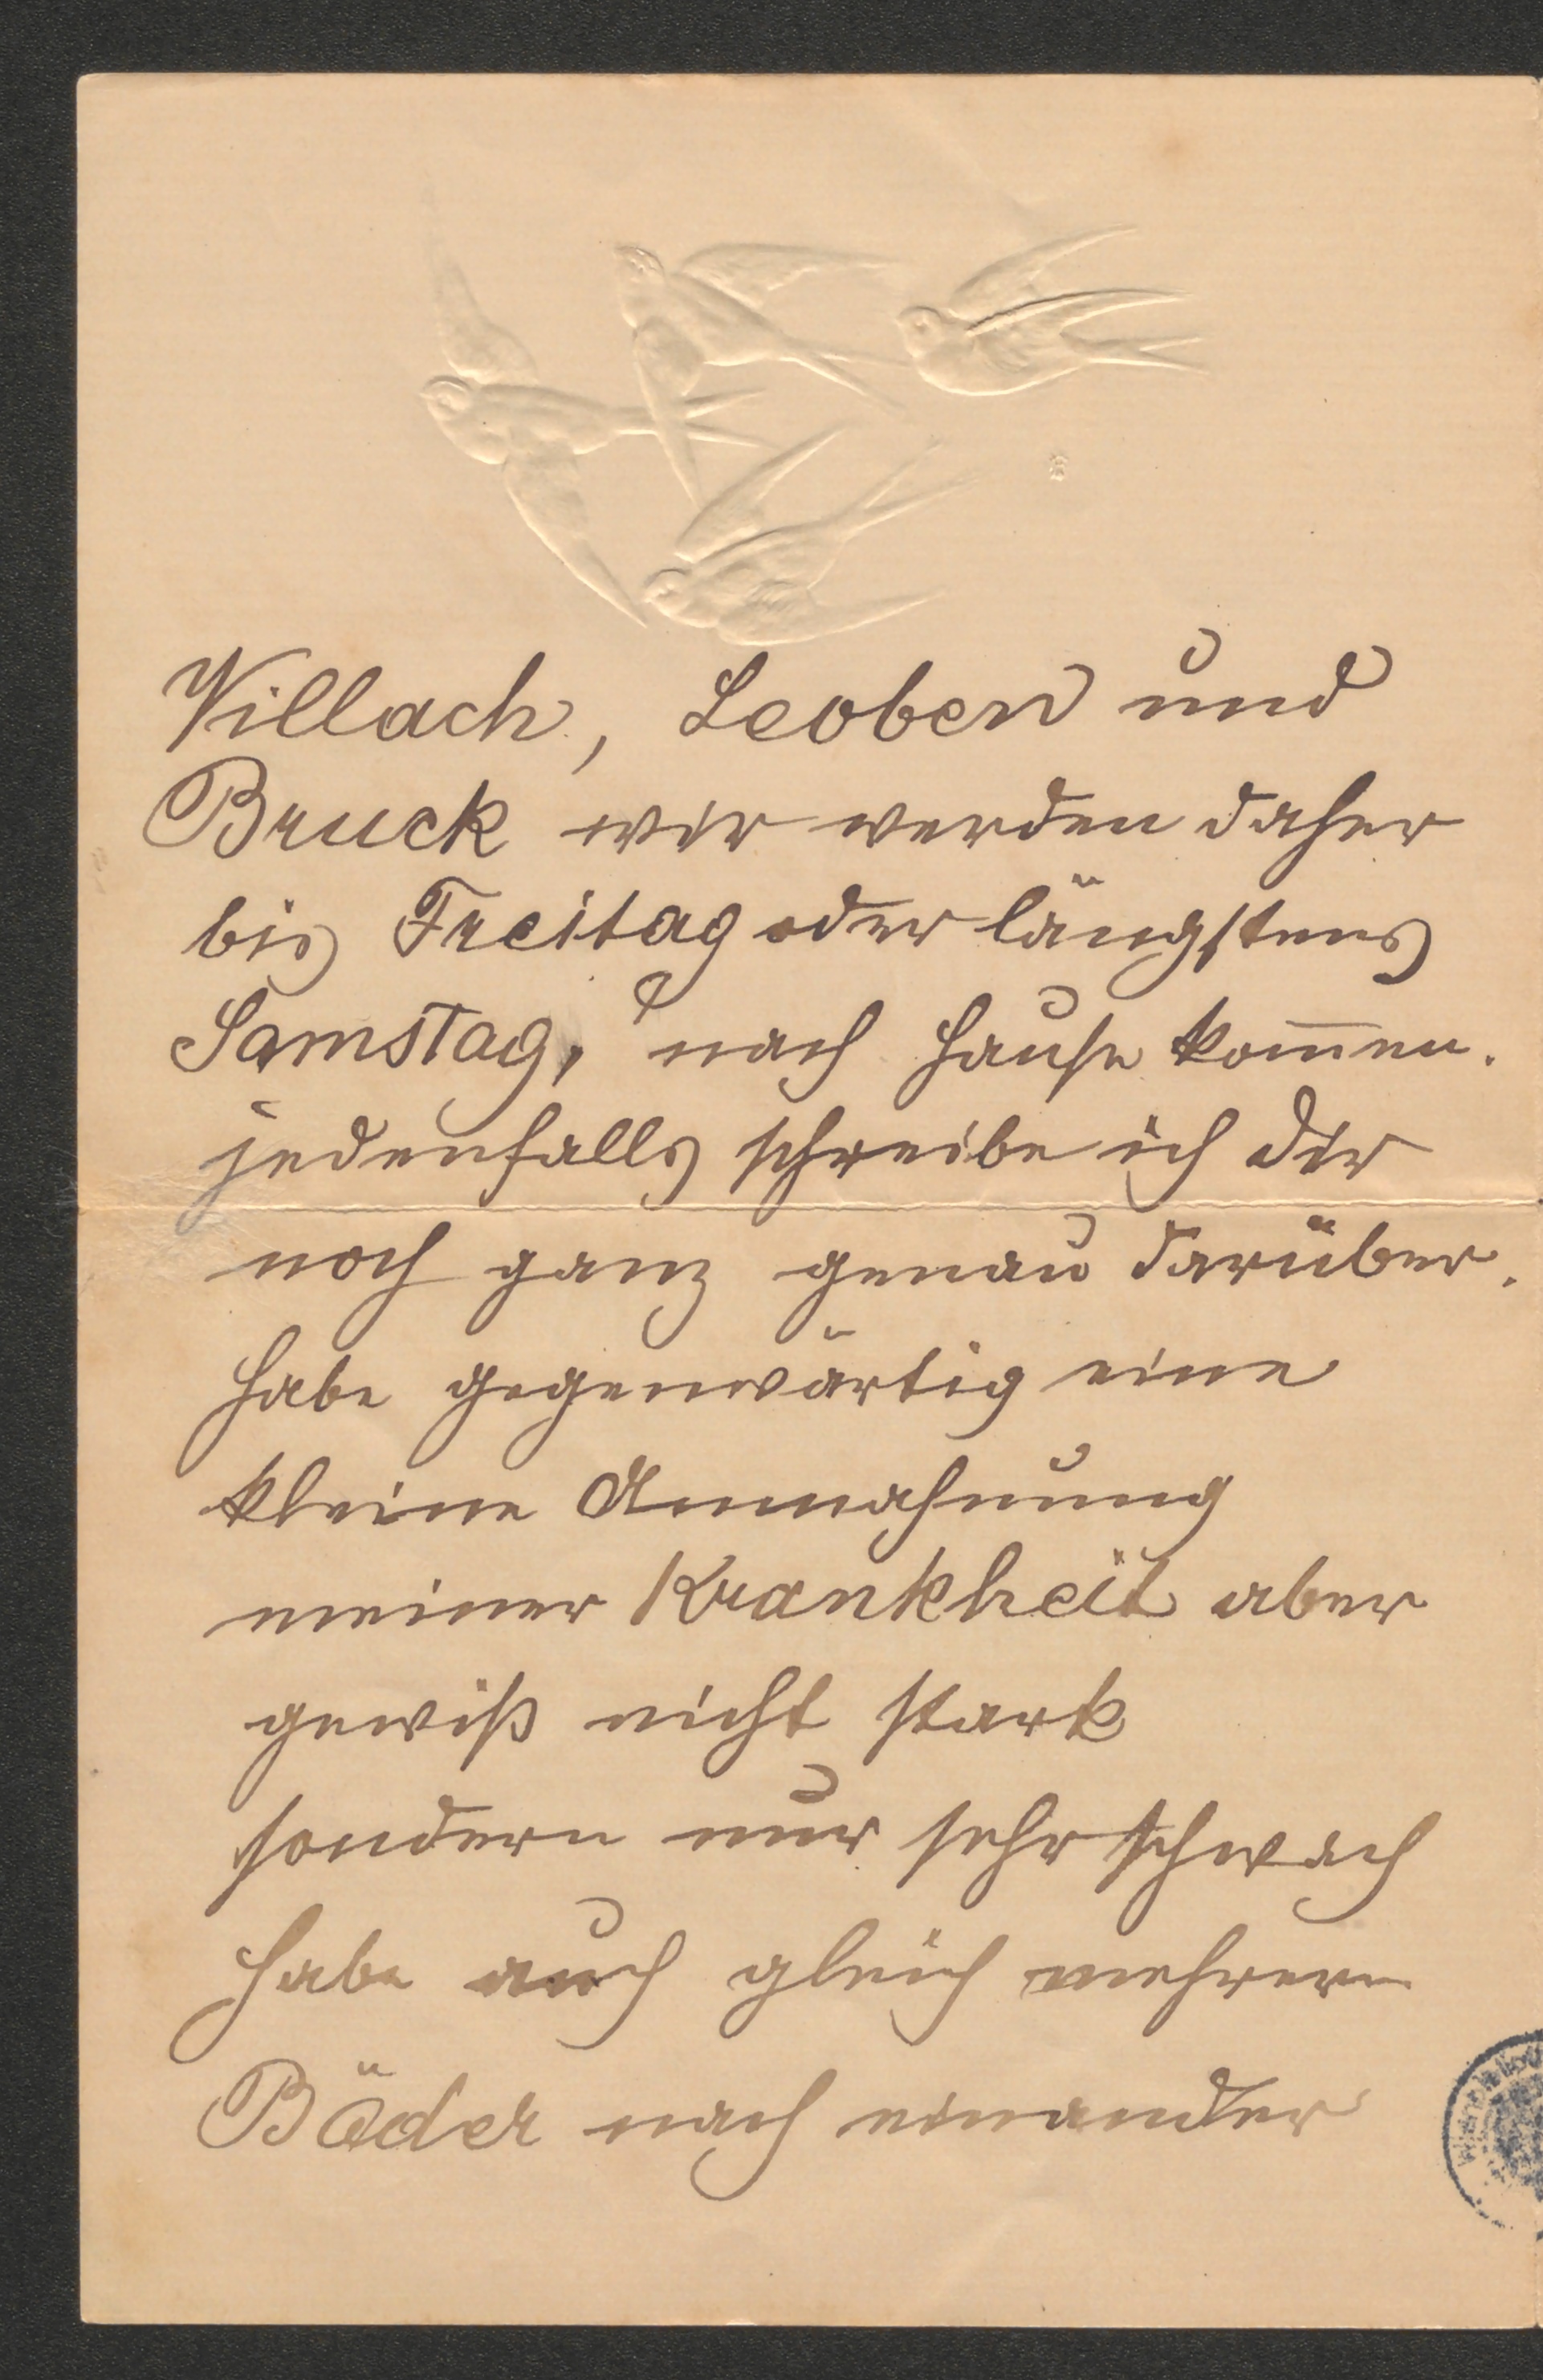 Villach, Leoben und
Bruck wir werden daher
bis Freitag oder längstens
Samstag, nach Hause kom̅en.
jedenfalls schreibe ich dir
noch ganz genau darüber.
habe gegenwärtig eine
kleine Anmahnung
meiner Krankheit aber
gewiß nicht stark
sondern nur sehr schwach
habe auch gleich mehrere
Bäder nach einander